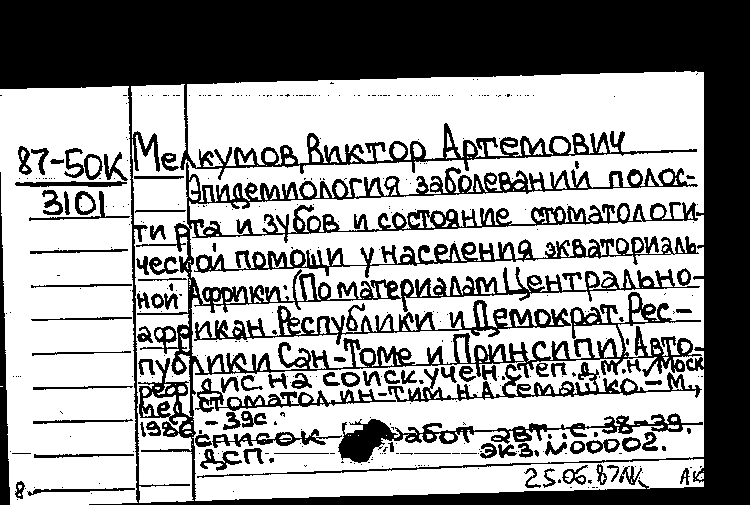 87-50К
3101
Мелкумов, Виктор Артемович
Эпидемиология заболеваний полос-
ти рта и зубов и состояние стоматологи-
ческой помощи у населения экваториаль-
ной Африки: (По материалам Центрально-
африкан. Республики и Демократ. Рес-
публики Сан-Томе и Принсипи): Авто-
реф. дис. на соиск. учен. степ. д.м.н./Моск
мед. стоматол. ин-т им. Н.А. Семашко. - М.,
1986. - 39с.
Список работ авт.: с. 38-39.
ДСП. Экз. N00002.
25.06.87
8.